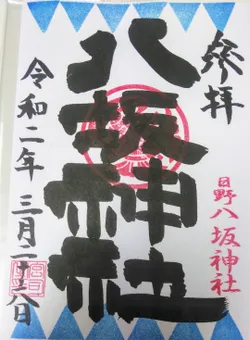 奉拝
日野八坂神社
八坂神社
令和二年 三月二十六日